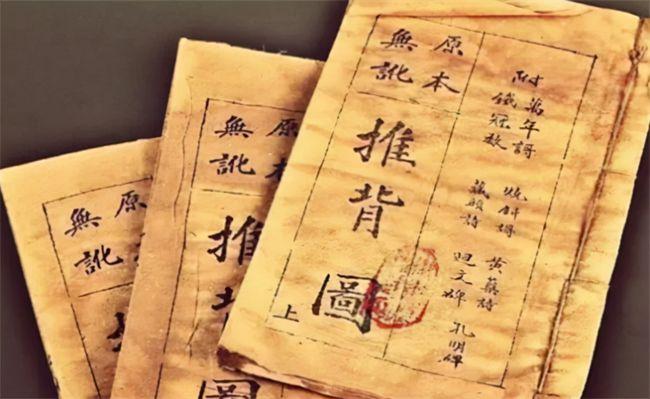 附萬年謌 燒餅謌 黃蘗詩 孔明碑
鐵冠数 藏頭詩 廻文碑
原本
無訛
推背圖
上
原本
無訛
推背圖
原
無訛